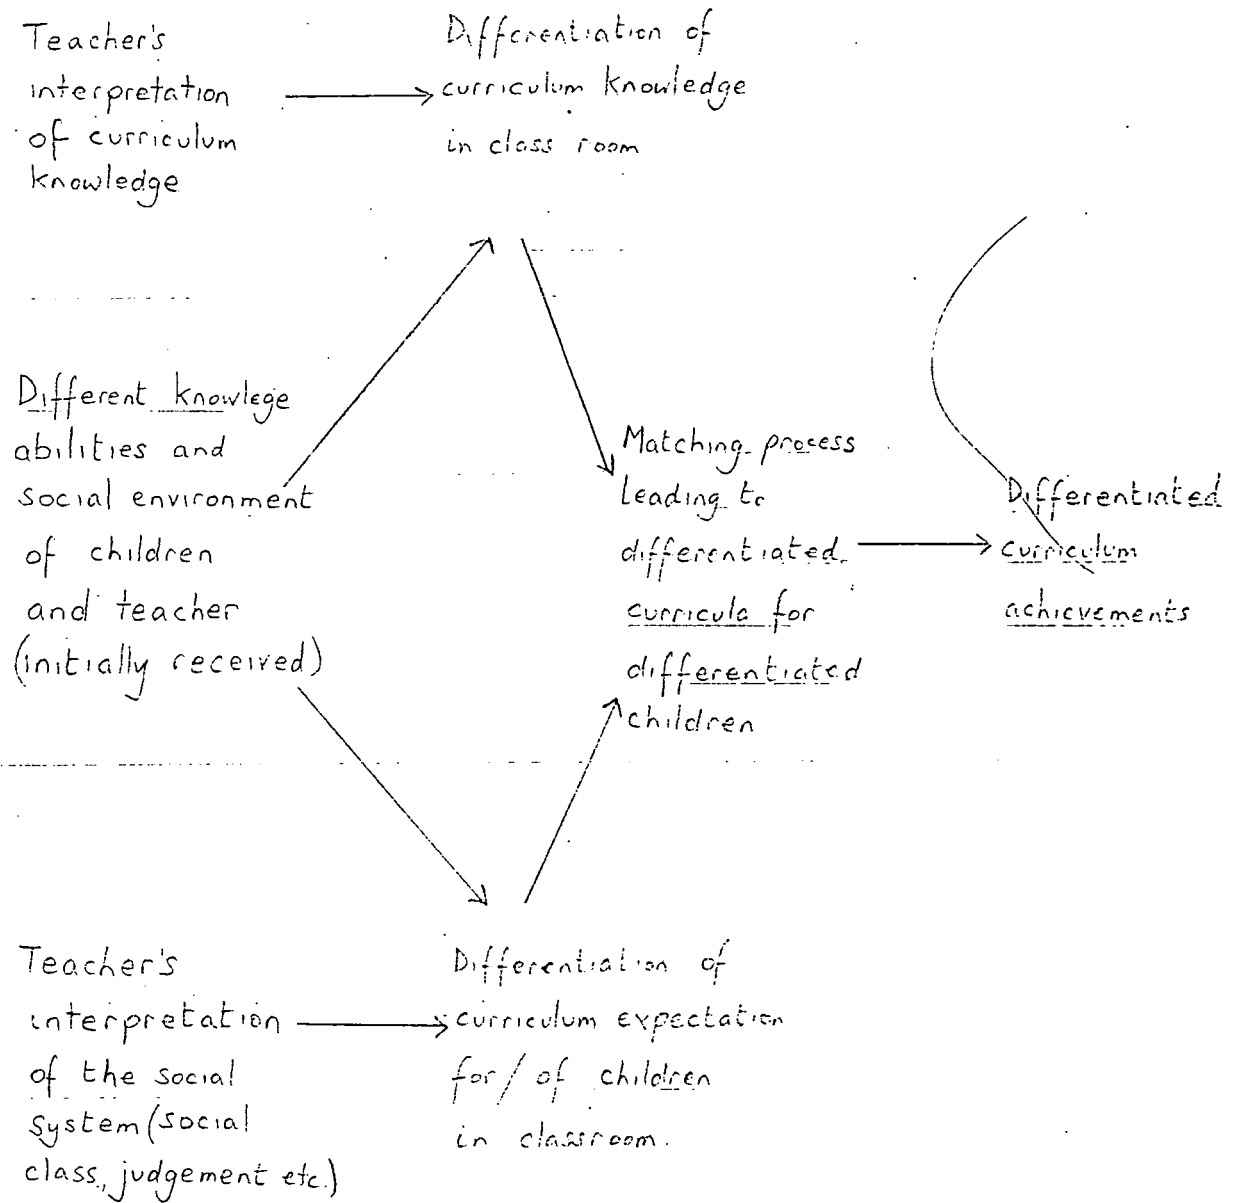 Teacher's
interpretation
of curriculum
knowledge
Differentiation of
curriculum knowledge
in class room
Different knowlege
abilities and
social environment
of children
and teacher
(initially received)
Matching process
leading to
differentiated
curricula for
differentiated
children
Differentiated
curriculum
achievements
Teacher's
interpretation
of the social
system (social
class, judgement etc.)
Differentiation of
curriculum expectation
for / of children
in classroom.